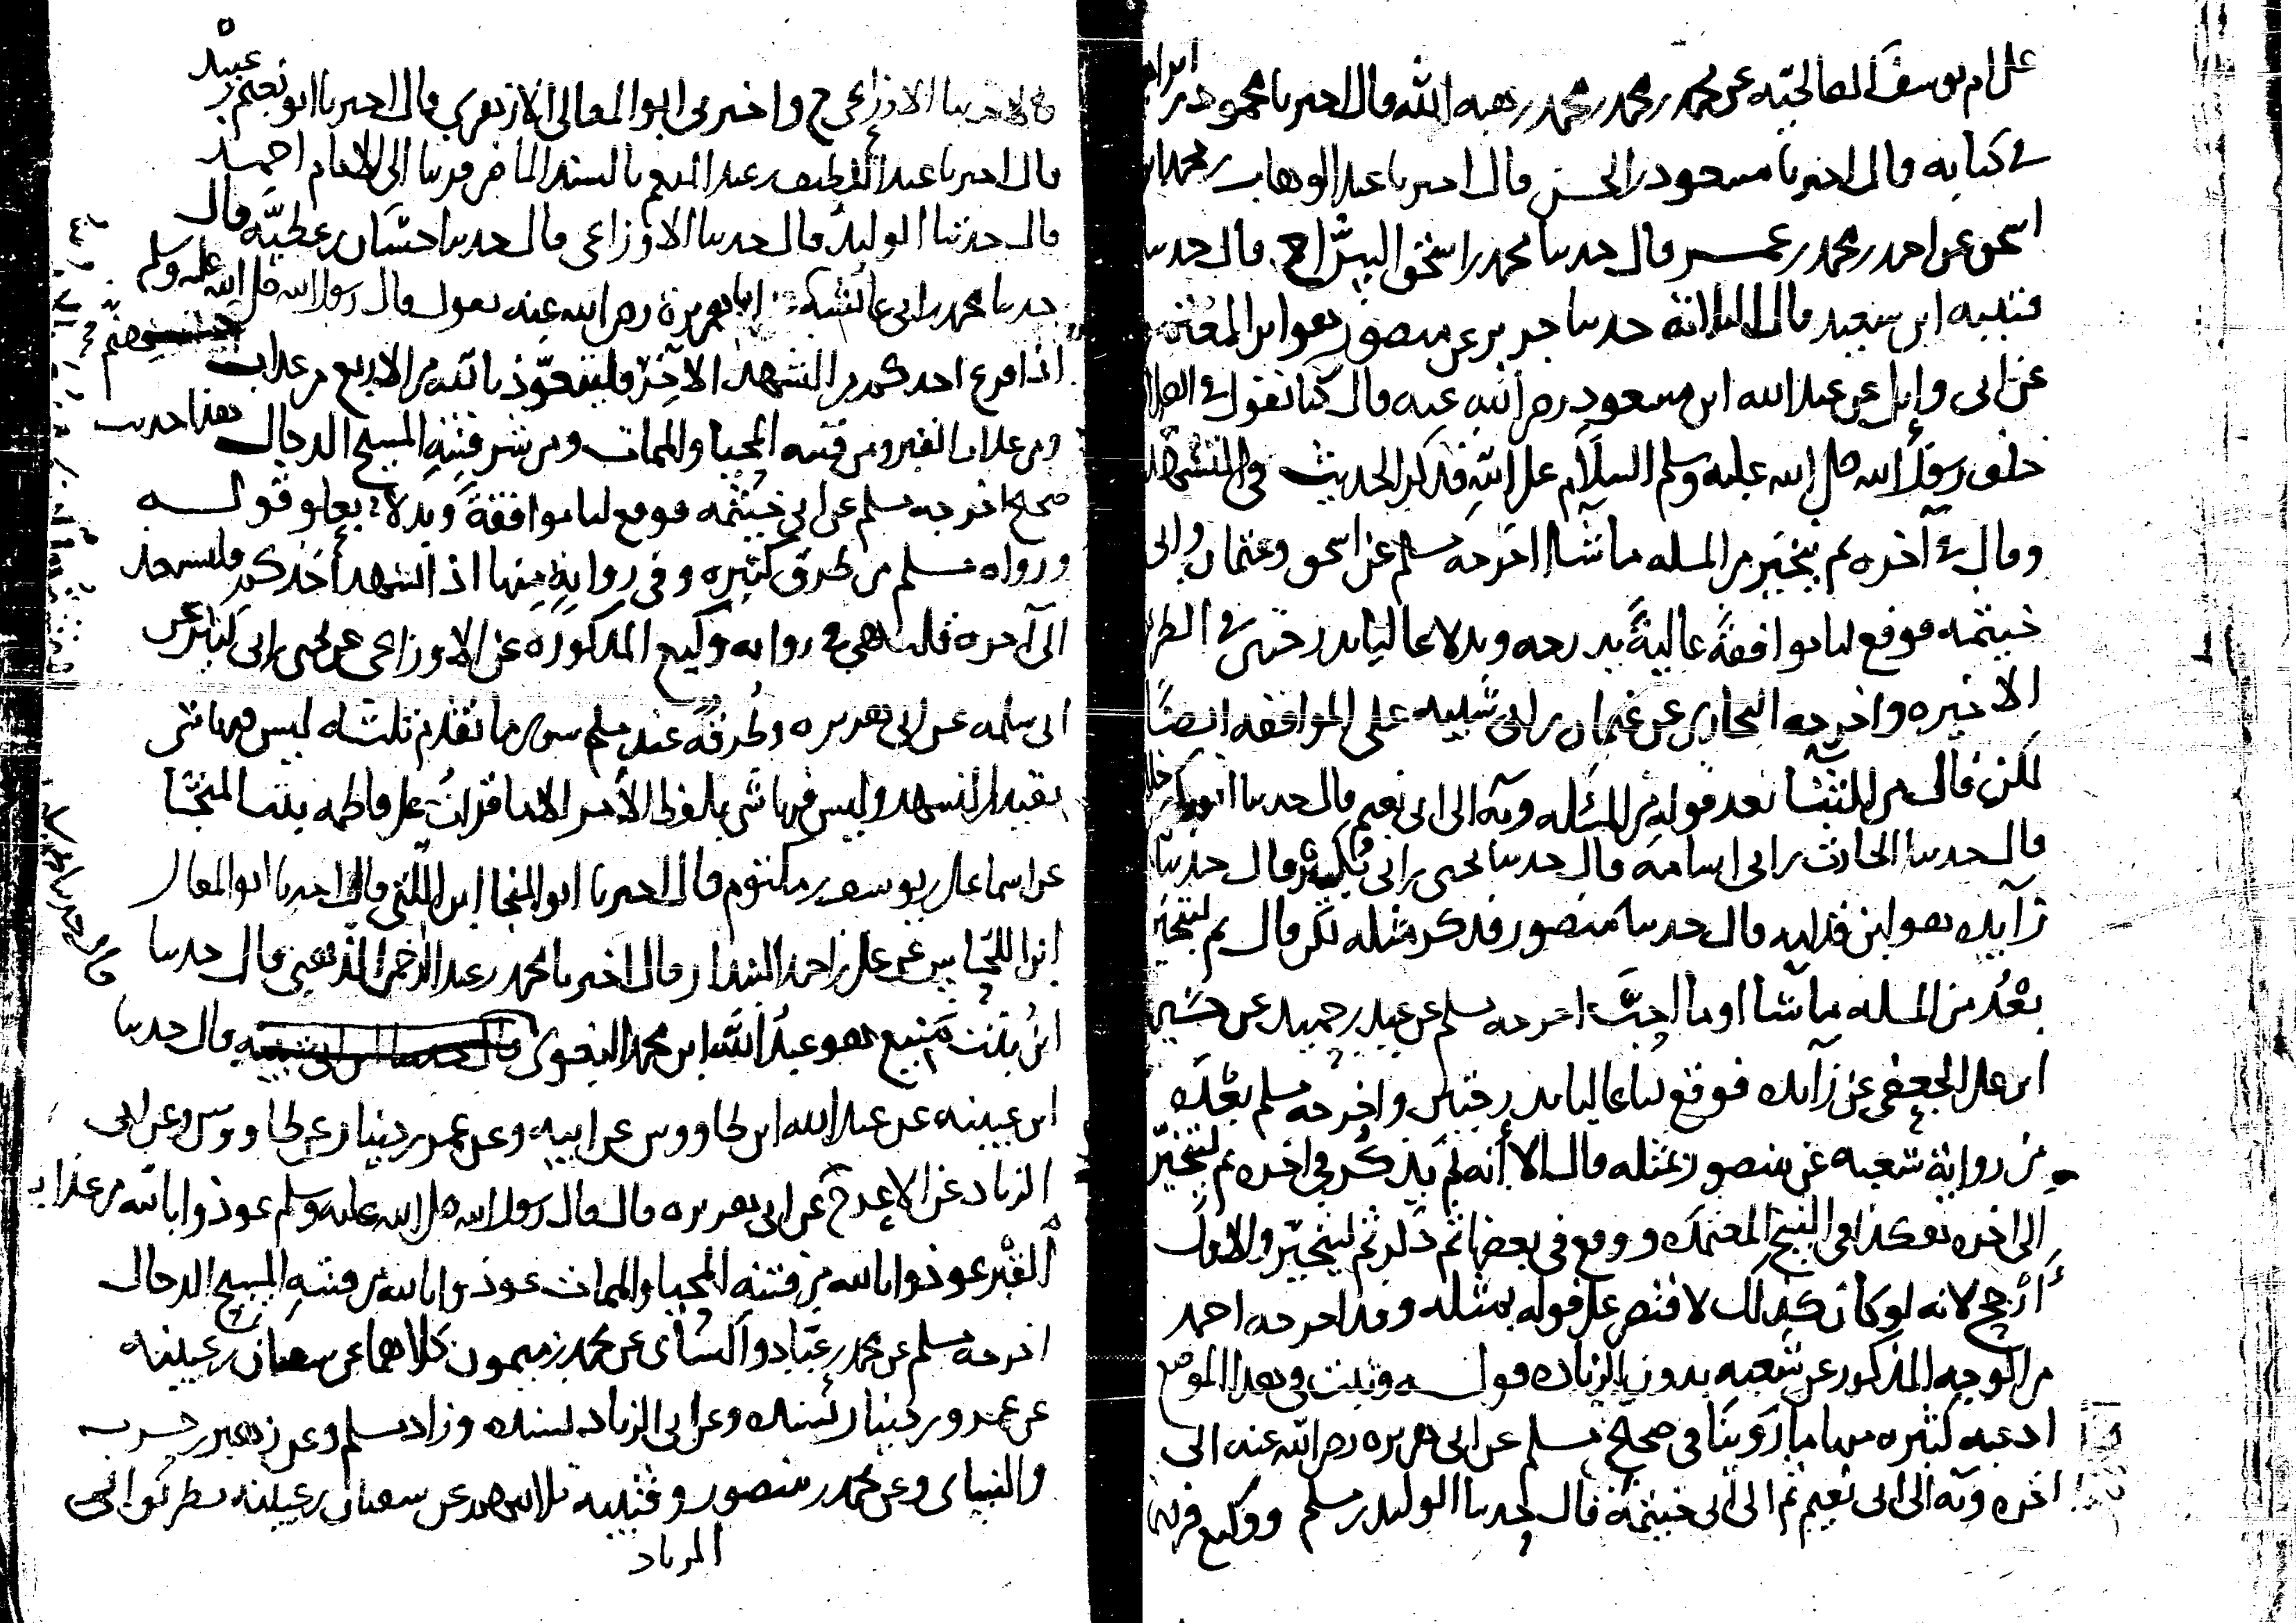 على ام يوسف الصالحية عن محمد بن محمد بن محمد بن هبة الله قال اخبرنا محمود بن ابراهيم
في كتابه قال اخبرنا مسعود بن الحسن قال اخبرنا عبد الوهاب بن محمد بن
اسحق عن احمد بن محمد بن عمر قال حدثنا محمد بن اسحق السراج قال حدثنا
قتيبه ابن سعيد قال حدثنا جرير عن منصور هو ابن المعتمر
عن ابي وايل عن عبد الله ابن مسعود رضي الله عنه قال كنا نقول في الصلاة
خلف رسول الله صلى الله عليه وسلم السلام على الله فذكر الحديث في التشهد
وقال في آخره ثم يتخير من المسله ما شا اخرجه مسلم عن اسحق وعثمان وابي
خيثمه فوقع لنا موافقة عالية بدرجه وبدلا عاليا بدرجتين في الطريق
الاخيره واخرجه البخاري عن عثمان بن ابي شيبه على الموافقه ايضا
لكن قال من الثنا بعد قوله من المسئله وبه الى ابي نعيم قال حدثنا ابو بكر بن خلاد
قال حدثنا الحارث بن ابي اسامه قال حدثنا يحيى بن ابي بكير قال حدثنا
زايده هو ابن قدامه قال حدثنا منصور فذكر مثله لكن قال ثم ليتخير
بعد من المسله ما شا او ما احب اخرجه مسلم عن عبد بن حميد عن حسين
ابن علي الجعفي عن زايده فوقع لنا عاليا بدرجتين واخرجه مسلم بعده
من رواية شعبه عن منصور بمثله قال الا أنه لم يذكر في اخره ثم ليتخير
الى اخره هكذا في النسخ المعتمده ووقع في بعضها ثم ذكر ثم ليتخير والاول
أرجح لانه لو كان كذلك لاقتصر على قوله بمثله وقد اخرجه احمد
من الوجه المذكور عن شعبه بدون الزياده قوله وثبت في هذا الموضع
ادعيه كثيره منها ما روينا في صحيح مسلم عن ابي هريره رضي الله عنه الى
اخره وبه الى ابي نعيم ثم الى ابي خيثمة قال حدثنا الوليد بن مسلم ووكيع فرقهما
قالا حدثنا الاوزاعي ح واخبرني ابو المعالي الازهري قال اخبرنا ابو نعيم بن عبيد
قال اخبرنا عبد اللطيف بن عبد المنعم بالسند الماضي قريبا الى الامام احمد
قال حدثنا الوليد قال حدثنا الاوزاعي قال حدثنا حسان بن عطيه قال
حدثنا محمد بن ابي عائشه ابا هريرة رضي الله عنه يقول قال رسول الله صلى الله عليه وسلم
اذا فرغ احدكم من التشهد الآخر فليتعوذ بالله من الاربع من عذاب جهنم
ومن عذاب القبر ومن فتنه المحيا والممات ومن شر فتنة المسيح الدجال هذا حديث
صحيح اخرجه مسلم عن ابي خيثمه فوقع لنا موافقة وبدلا بعلو قوله
ورواه مسلم من طرق كثيره وفي رواية منها اذا تشهد أحدكم فليستعذ
الى آخره قلت هي في روايه وكيع المذكوره عن الاوزاعي عن يحيى بن ابي كثير عن
ابي سلمه عن ابي هريره وطرقه عند مسلم سوى ما تقدم ثلثه ليس فيها شي
بقيد التشهد وليس فيها شي بلفظ الأمر الا ما قرأت على فاطمه بنت المنجا
عن اسماعيل بن يوسف بن مكتوم قال اخبرنا ابو المنجا ابن اللتي قال اخبرنا ابو المعالي
ابن اللحاس عن علي بن احمد البندار قال اخبرنا محمد بن عبد الرحمن الذهبي قال حدثنا
ابن بنت منيع هو عبد الله ابن محمد البغوي قال حدثنا ابن ابي شيبه قال حدثنا
ابن عيينه عن عبد الله ابن طاووس عن ابيه وعن عمرو بن دينار عن طاووس وعن ابي
الزناد عن الاعرج عن ابي هريره قال قال رسول الله صلى الله عليه وسلم عوذوا بالله من عذاب
القبر عوذوا بالله من فتنه المحيا والممات عوذوا بالله من فتنة المسيح الدجال
اخرجه مسلم عن محمد بن عباد والنسائى عن محمد بن ميمون كلاهما عن سفيان بن عيينه
عن عمرو بن دينار بسنده وعن ابي الزناد بسنده وزاد مسلم وعن زهير بن حرب
والنسائى وعن محمد بن منصور وقتيبه ثلاثتهم عن سفيان بن عيينه بطريق ابي
الزناد